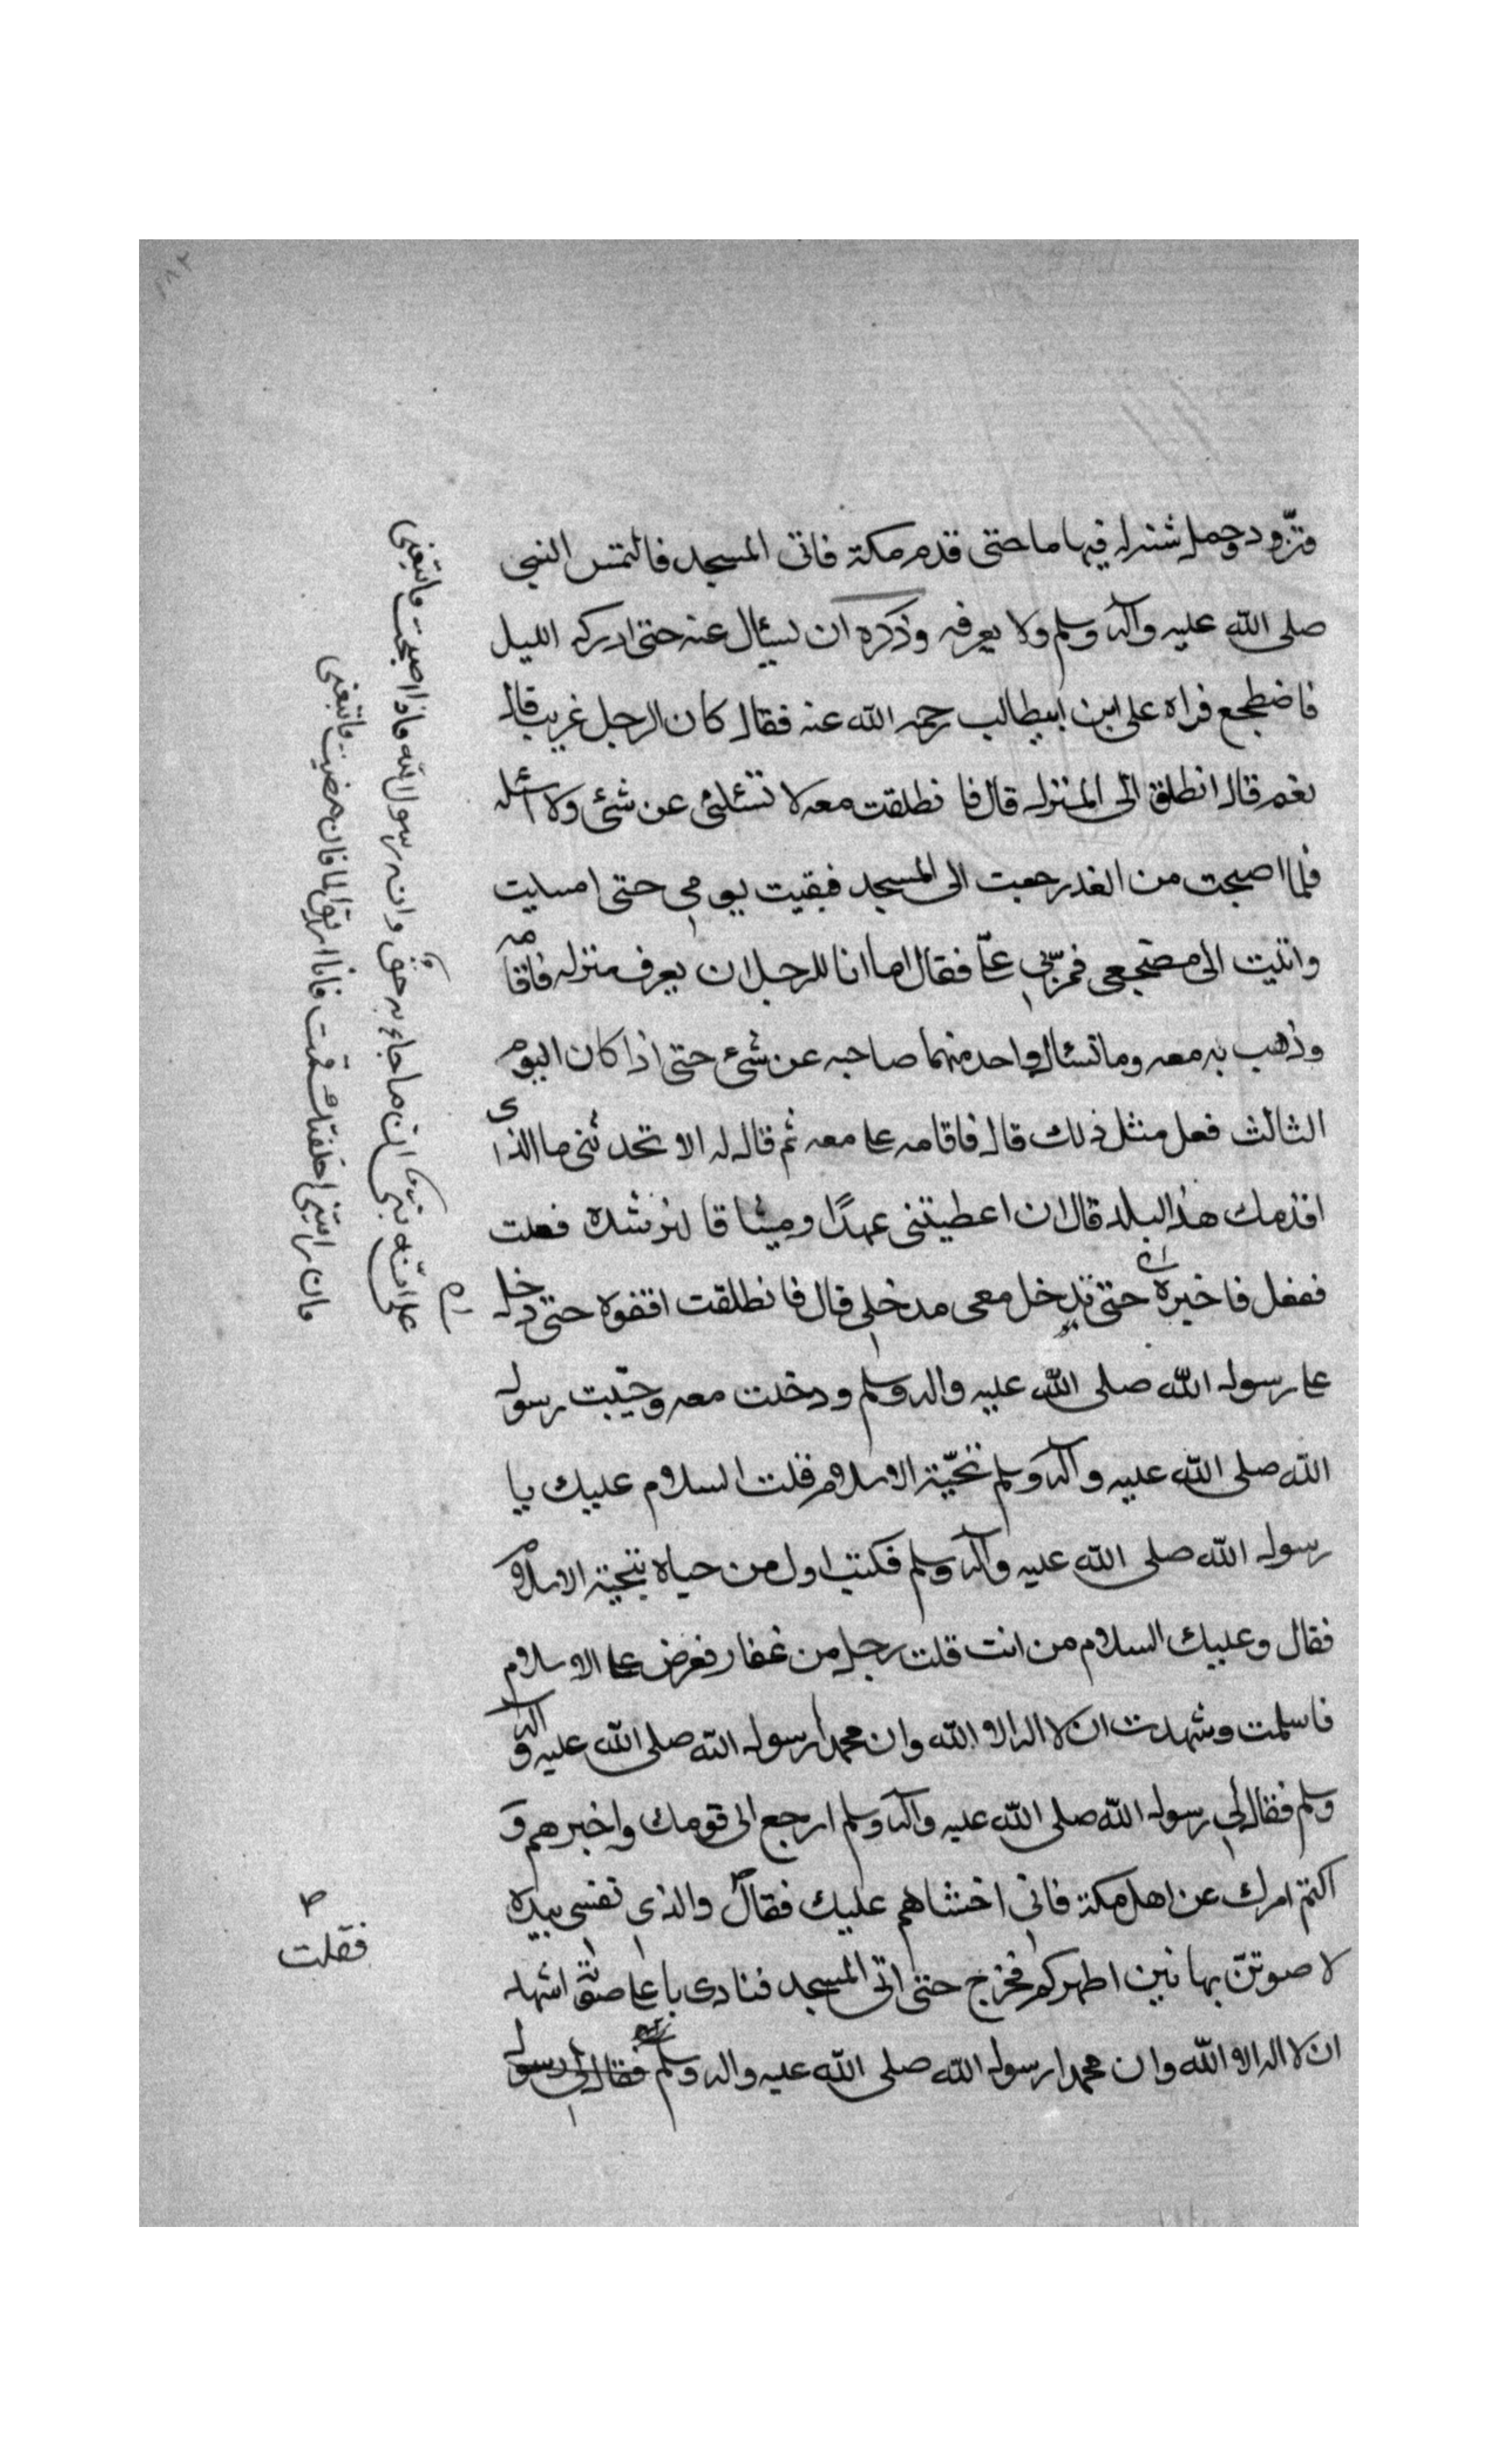 فتزود وحمل شنه له فيها ماحتى قدم مكة فاتى المسجد فالتمس النبي
صلى الله عليه وآله وسلم ولا يعرفه وكره ان يسئال عنه حتى ادركه الليل
فاضطجع فراه على ابن ابيطالب رحمه الله عنه فقال كان الرجل غريب قال
نعم قال انطلق الى المنزل قال فانطلقت معه لا تسئلني عن شئى ولا اسئله
فلما اصبحت من الغد رجعت الى المسجد فبقيت يومي حتى امسيت
واتيت الى مضجعي فمر بي علي فقال اما انا للرجل ان يعرف منزله فاقامه
وذهب به معه وما تسئال واحد منهما صاحبه عن شئ حتى اذا كان اليوم
الثالث فعل مثل ذلك قال فاقامه على معه ثم قال له الا تحدثني ما الذي
اقدمك هذا البلد قال ان اعطيتني عهدًا وميثاقا لترشده فعلت
ففعل فاخبره حتى تدخل معى مدخلي قال فانطلقت اقفوه حتى دخل
على رسول الله صلى الله عليه واله وسلم ودخلت معه وحييت رسول
الله صلى الله عليه وآله وسلم تحيّة الاسلام فقلت السلام عليك يا
رسول الله صلى الله عليه وآله وسلم فكنت اول من حياه بتحية الاسلام
فقال وعليك السلام من انت قلت رجل من غفار فعرض على الاسلام
فاسلمت وشهدت ان لا اله الا الله وان محمدا رسول الله صلى الله عليه وآله
وسلم فقال لي رسول الله صلى الله عليه وآله وسلم ارجع الى قومك واخبرهم و
اكتم امرك عن اهل مكة فانى اخشاهم عليك فقال والذي نفسي بيده
لا صوتن بها بين اظهركم فخرج حتى اتى المسجد فنادى با على صوته اشهد
ان لا اله الا الله وان محمدا رسول الله صلى الله عليه واله وسلم فقال لي رسول
ان ما جاء به حق وانه رسول الله فاذا اصبحت فاتبعني
فان رايتني قمت فان مضيت فاتبعني
فقلت